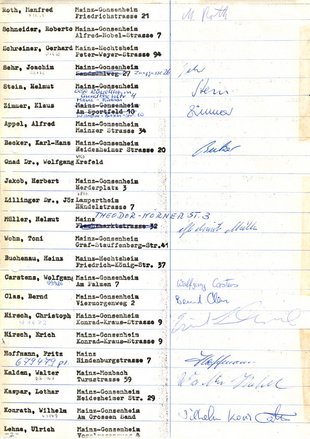 Roth, Manfred Mainz-Gonsenheim M. Roth
Friedrichstrasse 21
Schneider, Roberto Mainz-Gonsenheim
Alfred-Nobel-Strasse 7
Schreiner, Gerhard Mainz-Hechtsheim
Peter-Weyer-Strasse 94
Sehr, Joachim Mainz-Gonsenheim Sehr
27
Stein, Helmut Mainz-Gonsenheim Stein
Zimmer, Klaus Mainz-Gonsenheim Zimmer
Am Sportfeld 10
Appel, Alfred Mainz-Gonsenheim
Mainzer Strasse 34
Becker, Karl-Hans Mainz-Gonsenheim Becker
Heidesheimer Strasse 20
Gnad Dr., Wolfgang Krefeld
Jakob, Herbert Mainz-Gonsenheim
Herderplatz 3
Lillinger Dr., Jör Lampertheim
Händelstrasse 7
Müller, Helmut Mainz THEODOR-KÖRNER ST. 3 Helmut Müller
32
Wehn, Toni Mainz-Gonsenheim
Graf-Stauffenberg-Str. 41
Buchenau, Heinz Mainz-Hechtsheim
Friedrich-König-Str. 37
Carstens, Wolfgang Mainz-Gonsenheim Wolfgang Carstens
Am Palmen 7
Clas, Bernd Mainz-Gonsenheim Bernd Clas
Vierzehn-Morgenweg 2
Hirsch, Christoph Mainz-Gonsenheim
Konrad-Kraus-Strasse 9
Hirsch, Erich Mainz-Gonsenheim
Konrad-Kraus-Strasse 9
Hoffmann, Fritz Mainz Hoffmann
Hindenburgstrasse 7
Kalden, Walter Mainz-Mombach
Turmstrasse 59
Kaspar, Lothar Mainz-Gonsenheim
Heidesheimer Str. 29
Konrath, Wilhelm Mainz-Gonsenheim Wilhelm Konrath
Am Grossen Sand
Lehna, Ulrich Mainz-Gonsenheim